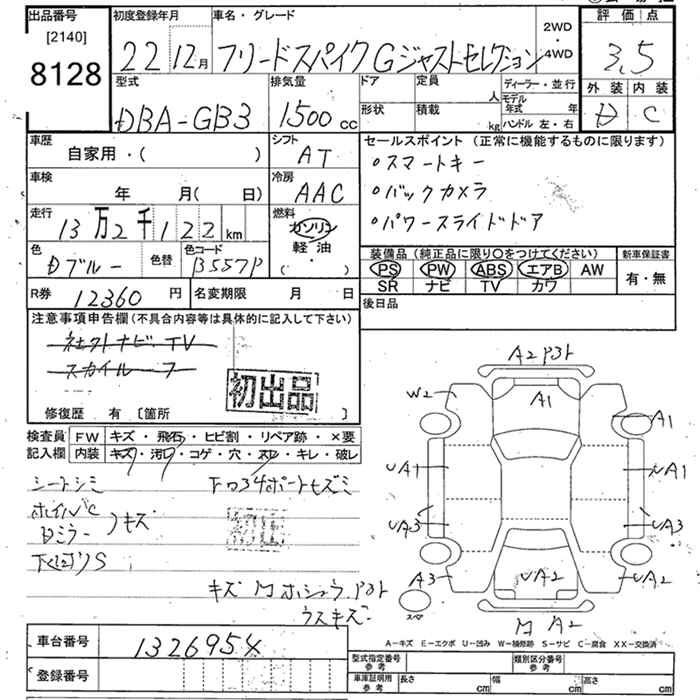 出品番号 初度登録年月 車名・グレード 2WD・4WD 評価点
[2140]
8128
22年 12月 フリードスパイクGジャストセレクション 3.5
型式 排気量 ドア 定員 人 ディーラー・並行 外装 内装
DBA-GB3 1500cc 形状 積載 kg モデル年式 年 ハンドル 左・右 D C
車歴 自家用・( ) シフト AT セールスポイント(正常に機能するものに限ります)
○スマートキー
車検 年 月( 日) 冷房 AAC ○バックカメラ
走行 13万2千122km 燃料 ガソリン ○パワースライドドア
軽油
( ・ )
色 Dブルー 色替 色コード B557P
装備品(純正品に限り○をつけてください) 新車保証書
PS PW ABS エアB AW 有・無
SR ナビ TV カワ
R券 12360円 名変期限 月 日 後日品
注意事項申告欄(不具合内容等は具体的に記入して下さい)
ナビ・TV
初出品
修復歴 有 [箇所 ]
検査員 FW キズ・飛石・ヒビ割・リペア跡・×要
記入欄 内装 キズ・汚レ・コゲ・穴・スレ・キレ・破レ
シートシミ
ホイルC
Dミラー キズ
初出
S
キズ
ウスキズ
A2 P3ト
W2
A1
A1
UA1
UA1
UA3
UA3
A3
UA2
UA2
スペア
A2
A-キズ E-エクボ U-凹み W-補修跡 S-サビ C-腐食 XX-交換済
車台番号 1326954
登録番号
型式指定番号 参考 類別区分番号 参考
車庫証明用 参考 長さ cm 幅 cm 高さ cm